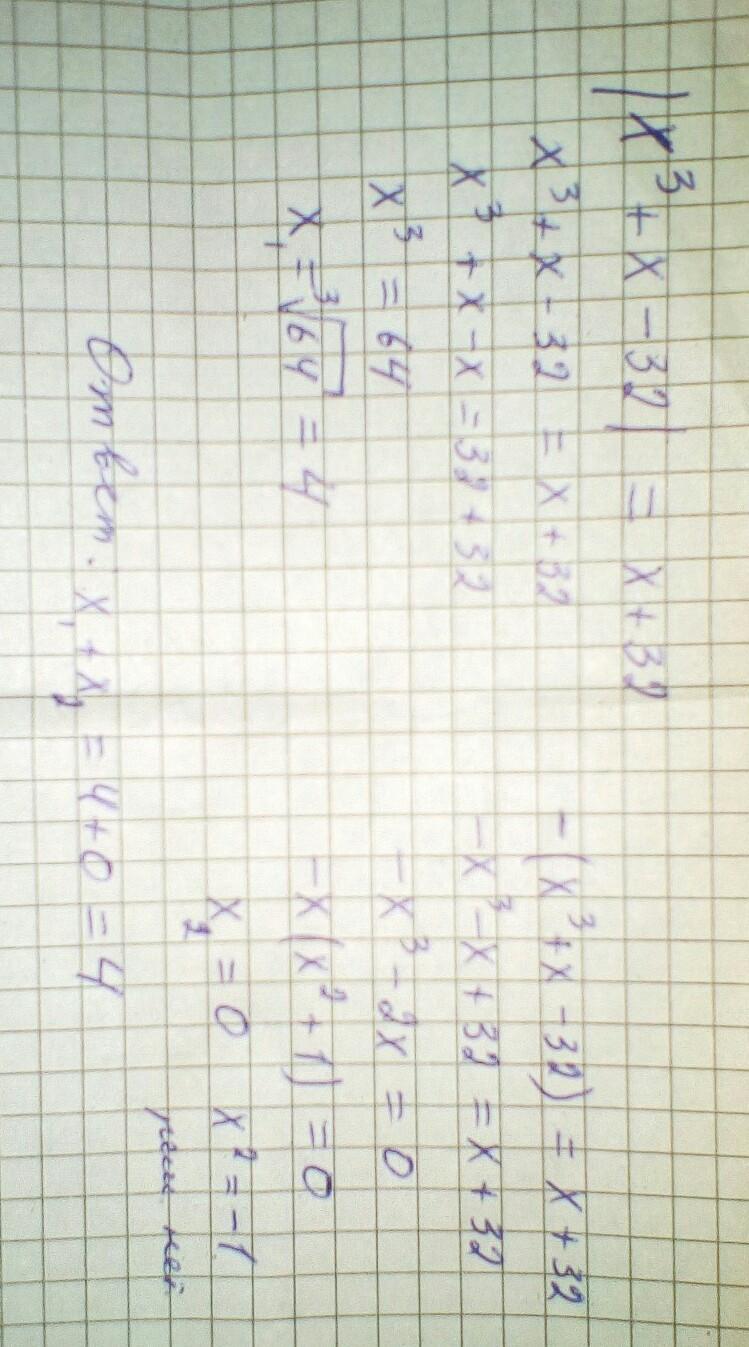 |x³ + x - 32| = x + 32
x³ + x - 32 = x + 32
x³ + x - x = 32 + 32
x³ = 64
x₁ = ³√64 = 4
-(x³ + x - 32) = x + 32
-x³ - x + 32 = x + 32
-x³ - 2x = 0
-x(x² + 1) = 0
x₂ = 0 x² = -1
реш. нет
Ответ: x₁ + x₂ = 4 + 0 = 4